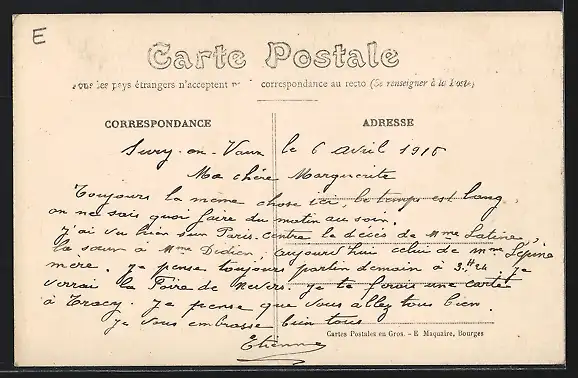 E
Carte Postale
Tous les pays étrangers n'acceptent pas correspondance au recto (Se renseigner à la Poste)
CORRESPONDANCE ADRESSE
Sury-en-Vaux le 6 avril 1916
Ma chère Marguerite
Toujours la même chose ici, le temps est long
on ne sais quoi faire du matin au soir.
J'ai vu hier sur Paris-Centre le décès de Mme
la sœur à Mme Didier, aujourd'hui celui de Mme Lépine
mère. Je pense toujours partir demain à 3H 24. Je
verrai la Foire de Nevers. Je te ferais une carte
à Tracy. Je pense que vous allez tous bien.
Je vous embrasse bien tous
Étienne
Cartes Postales en Gros. - E Maquaire, Bourges